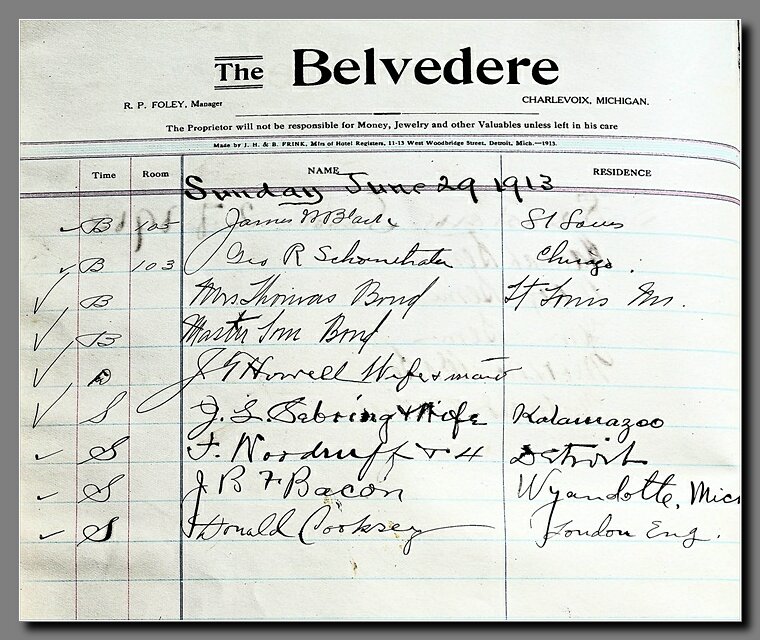 The Belvedere
R. P. FOLEY, Manager CHARLEVOIX, MICHIGAN.
The Proprietor will not be responsible for Money, Jewelry and other Valuables unless left in his care
Made by J. H. & B. FRINK, Mfrs of Hotel Registers, 11-13 West Woodbridge Street, Detroit, Mich.—1913.
Time Room NAME RESIDENCE
Sunday June 29 1913
B 105 James W Black St Louis
B 103 Geo R Chicago.
B Mrs Thomas Bond St Louis Mo.
B Master Tom Bond
J T Howell Wife & maid
S J. L. Sebring & Wife Kalamazoo
S F. Woodruff + 4 Detroit
S J B F Bacon Wyandotte, Mich
S Donald Cooksey London Eng.